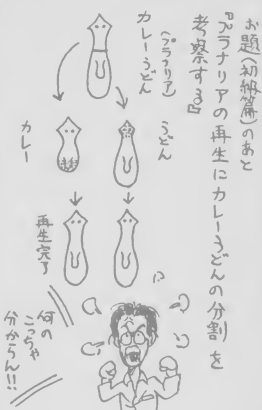 お題(初納篇)のあと
『プラナリアの再生にカレーうどんの分割を
考察する』
カレーうどん
(プラナリア)
カレー
うどん
再生完了
何の
こっちゃ
分からん!!